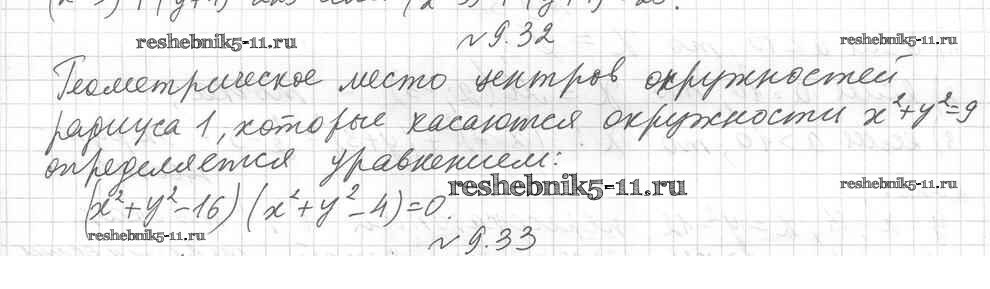 № 9.32
reshebnik5-11.ru
reshebnik5-11.ru
Геометрическое место центров окружностей
радиуса 1, которые касаются окружности x²+y²=9
определяется уравнением:
reshebnik5-11.ru
reshebnik5-11.ru
(x²+y²-16)(x²+y²-4)=0.
reshebnik5-11.ru
№ 9.33